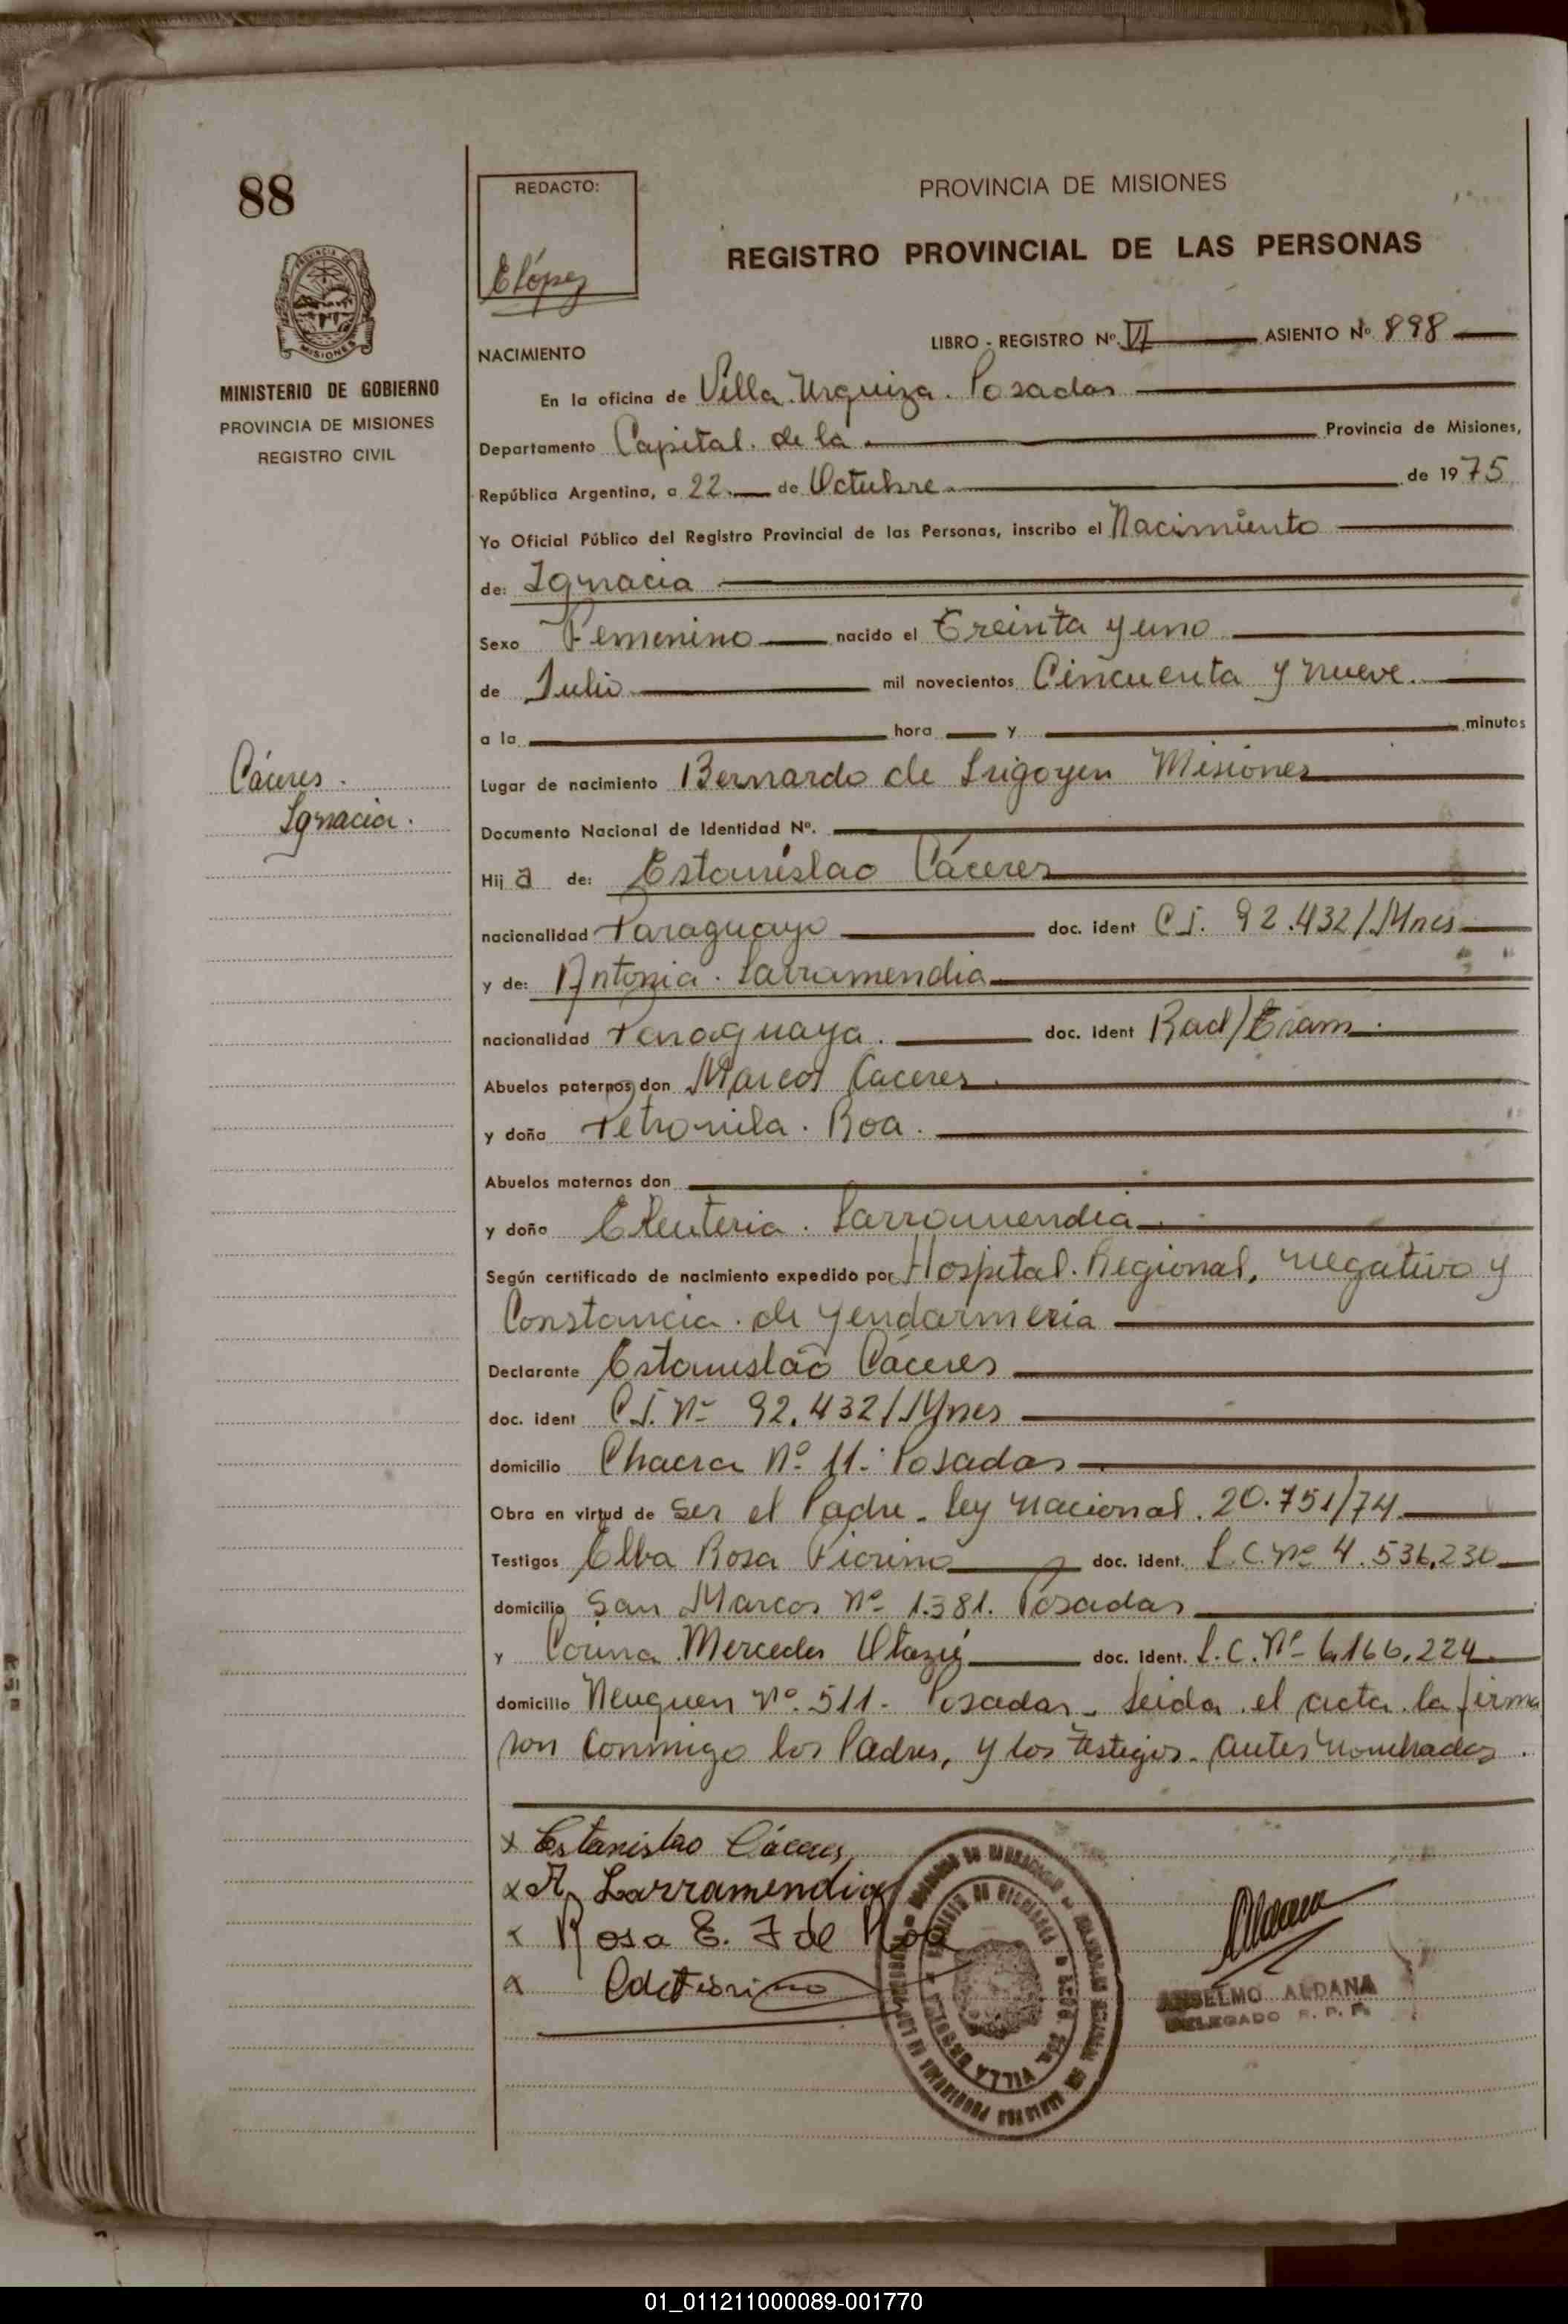 88
REDACTO:
ELópez
PROVINCIA DE MISIONES
REGISTRO PROVINCIAL DE LAS PERSONAS
MISIONES
MINISTERIO DE GOBIERNO
PROVINCIA DE MISIONES
REGISTRO CIVIL
LIBRO - REGISTRO Nº. VI ASIENTO Nº 898
NACIMIENTO
En la oficina de Villa Urquiza. Posadas
Departamento Capital. de la Provincia de Misiones,
República Argentina, a 22 de Octubre de 1975
Yo Oficial Público del Registro Provincial de las Personas, inscribo el Nacimiento
de: Ignacia
Sexo Femenino nacido el Treinta y uno
de Julio mil novecientos Cincuenta y nueve.
a la hora y minutos
Cáceres.
Ignacia.
Lugar de nacimiento Bernardo de Irigoyen Misiones
Documento Nacional de Identidad Nº.
Hij a de: Estanislao Cáceres
nacionalidad Paraguayo doc. ident C.I. 92.432/Mnes
y de: Antonia. Larramendia
nacionalidad Paraguaya. doc. ident Rad/Tram.
Abuelos paternos don Marcos Caceres
y doña Petronila. Roa.
Abuelos maternos don
y doña Eleuteria. Larramendia
Según certificado de nacimiento expedido por Hospital. Regional, negativo y
Constancia. de Gendarmeria
Declarante Estanislao Cáceres
doc. ident C.I. Nº 92.432/Mnes
domicilio Chacra Nº 11.- Posadas
Obra en virtud de ser el Padre. ley nacional. 20.751/74
Testigos Elba Rosa Fiorino doc. ident. L.C. Nº 4.536.236
domicilio San Marcos Nº 1.381. Posadas
y Corina Mercedes Otazú doc. ident. L.C. Nº 6.166.224
domicilio Neuquen Nº 511.- Posadas. Leida el acta la firma
ron conmigo los Padres, y los testigos. antes nombrados.
x Estanislao Cáceres
x A. Larramendia
x Rosa E. F de Roa
x
VILLA URQUIZA
ANSELMO ALDANA
DELEGADO R. P. P.
01_011211000089-001770